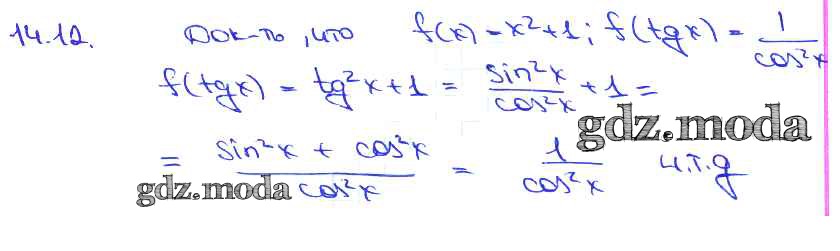 14.12. Док-ть, что f(x) = x²+1; f(tgx) = 1/cos²x
f(tgx) = tg²x+1 = sin²x/cos²x + 1 =
gdz.moda
= (sin²x + cos²x)/cos²x = 1/cos²x ч.т.д
gdz.moda